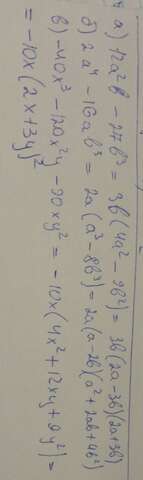 а) 12a²b - 27b³ = 3b(4a² - 9b²) = 3b(2a-3b)(2a+3b)
б) 2a⁴ - 16ab³ = 2a(a³ - 8b³) = 2a(a-2b)(a² + 2ab + 4b²)
в) -40x³ - 120x²y - 90xy² = -10x(4x² + 12xy + 9y²) =
= -10x(2x+3y)²